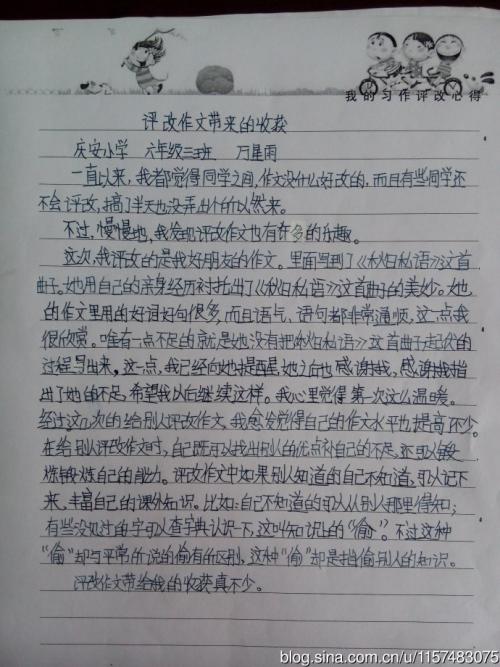 我的习作评改心得
评改作文带来的收获
庆安小学 六年级三班 万星雨
一直以来,我都觉得同学之间,作文没什么好改的,而且有些同学还
不会评改,搞了半天也没弄出个所以然来。
不过,慢慢地,我发现评改作文也有许多的乐趣。
这次,我评改的是我好朋友的作文。里面写到了《秋日私语》这首
曲子,她用自己的亲身经历衬托出了《秋日私语》这首曲子的美妙。她
的作文里用的好词好句很多,而且语气、语句都非常通顺,这一点我
很欣赏。唯有一点不足的就是她没有把《秋日私语》这首曲子起伏的
过程写出来,这一点,我已经向她提醒,她也感谢我,感谢我指
出了她的不足,希望我以后继续这样。我心里觉得第一次这么温暖。
经过这几次的给别人评改作文,我愈发觉得自己的作文水平也提高不少。
在给别人评改作文时,自己既可以找出别人的优点补自己的不足,亦可以锻
炼锻炼自己的能力。评改作文中如果别人知道的自己不知道,可以记下
来,丰富自己的课外知识。比如:自己不知道的可以从别人那里得知;
有些没见过的字可以查字典认识一下,这叫知识上的“偷”。不过这种
“偷”却与平常所说的偷有所区别,这种“偷”却是指偷别人的知识。
评改作文带给我的收获真不少。
blog.sina.com.cn/u/1157483075